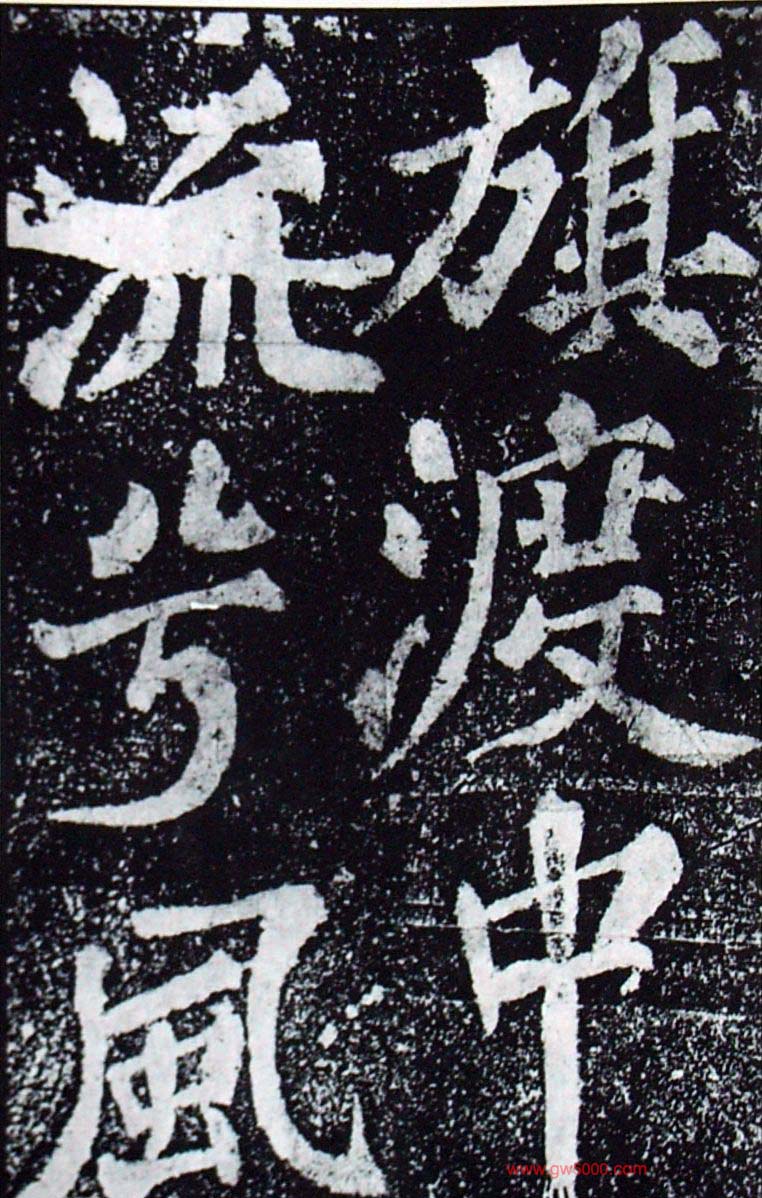 旗渡中
流兮風
www.gw5000.com